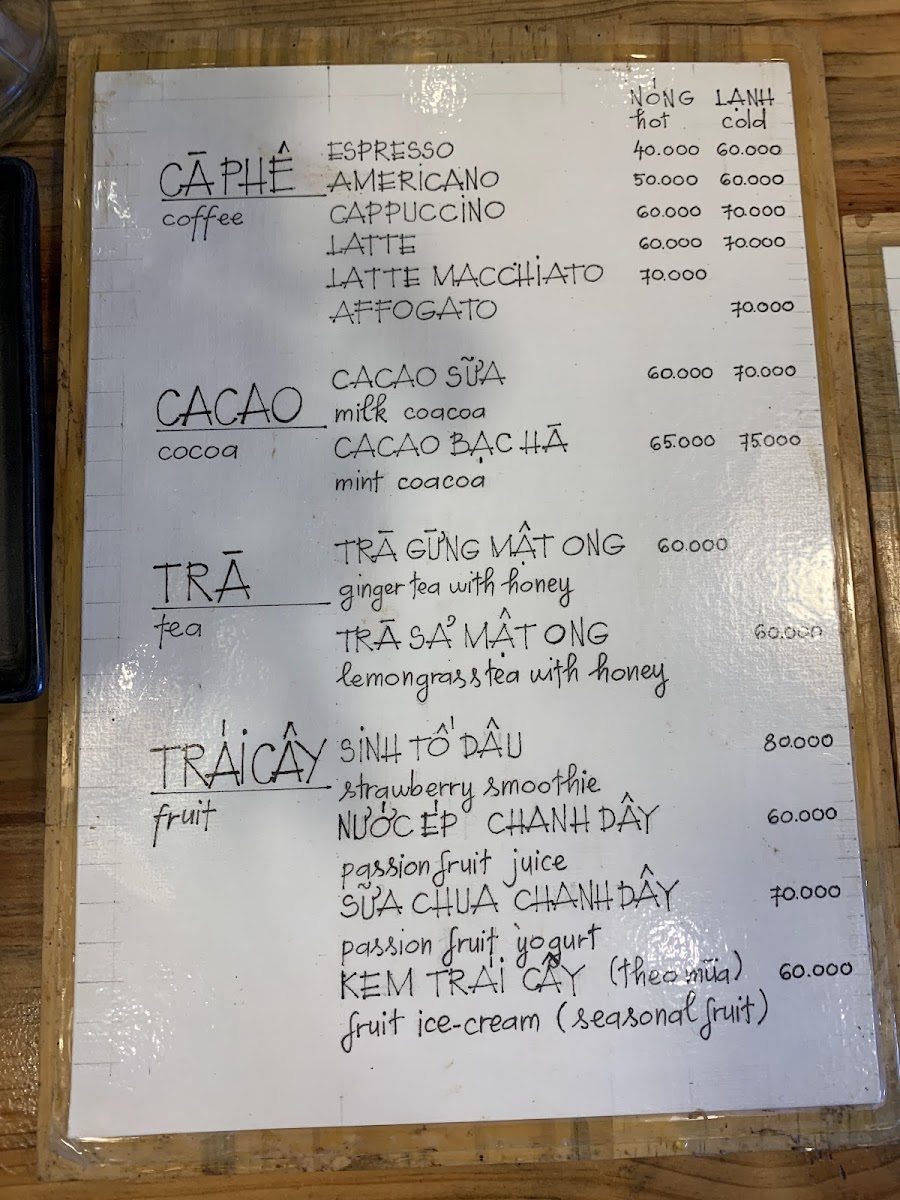 NÓNG LẠNH
hot cold
CÀ PHÊ
coffee
ESPRESSO 40.000 60.000
AMERICANO 50.000 60.000
CAPPUCCINO 60.000 70.000
LATTE 60.000 70.000
LATTE MACCHIATO 70.000
AFFOGATO 70.000
CACAO
cocoa
CACAO SỮA 60.000 70.000
milk coacoa
CACAO BẠC HÀ 65.000 75.000
mint coacoa
TRÀ
tea
TRÀ GỪNG MẬT ONG 60.000
ginger tea with honey
TRÀ SẢ MẬT ONG 60.000
lemongrass tea with honey
TRÁI CÂY
fruit
SINH TỐ DÂU 80.000
strawberry smoothie
NƯỚC ÉP CHANH DÂY 60.000
passion fruit juice
SỮA CHUA CHANH DÂY 70.000
passion fruit yogurt
KEM TRÁI CÂY (theo mùa) 60.000
fruit ice-cream (seasonal fruit)